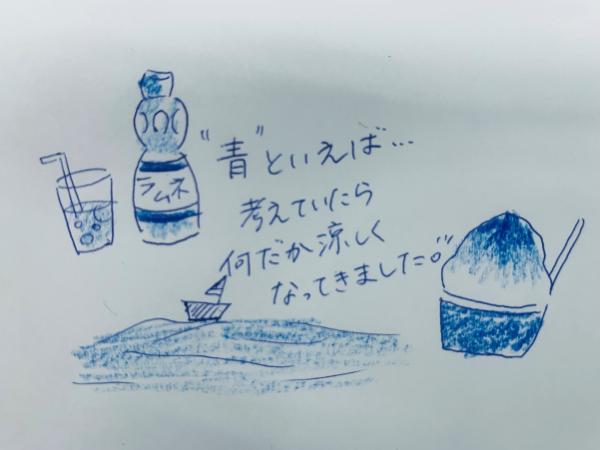 ラムネ
"青"といえば…
考えていたら
何だか涼しく
なってきました。